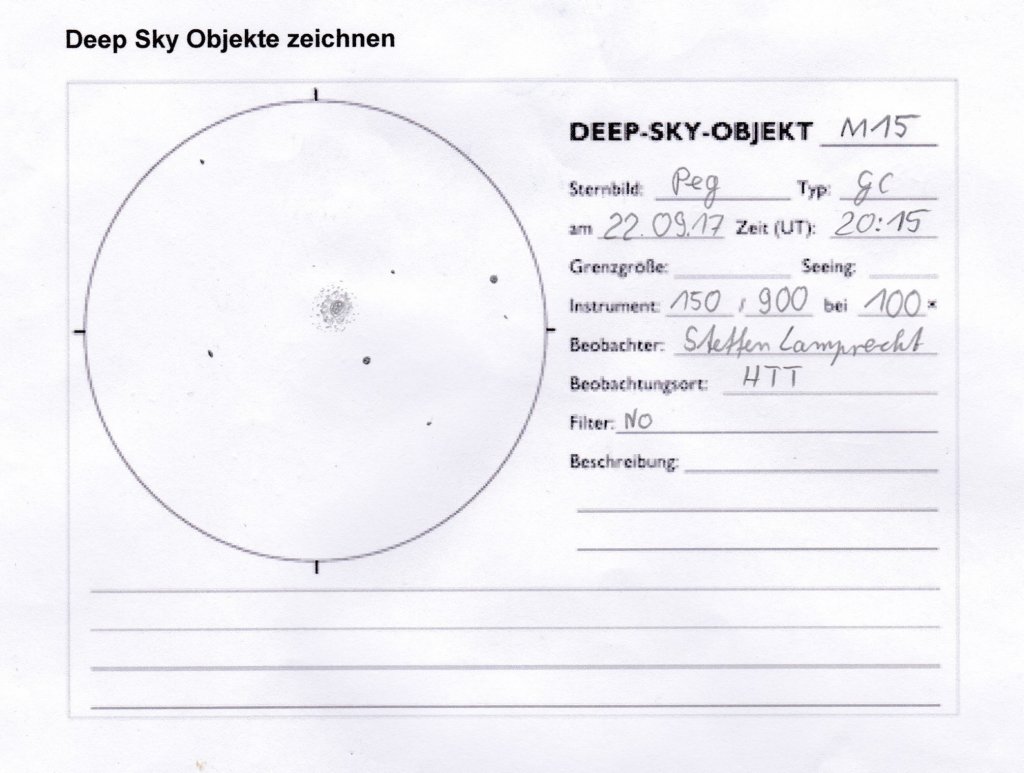 Deep Sky Objekte zeichnen
DEEP-SKY-OBJEKT M15
Sternbild: Peg Typ: GC
am 22.09.17 Zeit (UT): 20:15
Grenzgröße: Seeing:
Instrument: 150 / 900 bei 100 x
Beobachter: Steffen Lamprecht
Beobachtungsort: HTT
Filter: NO
Beschreibung: